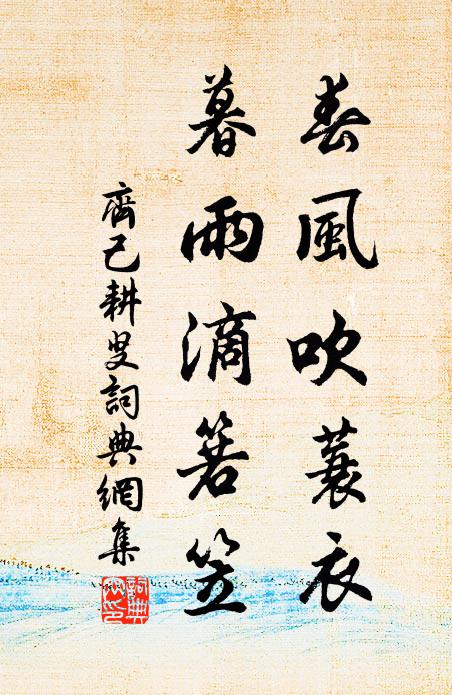 春風吹蓑衣
暮雨滴箬笠
齊己耕叟詞典網集